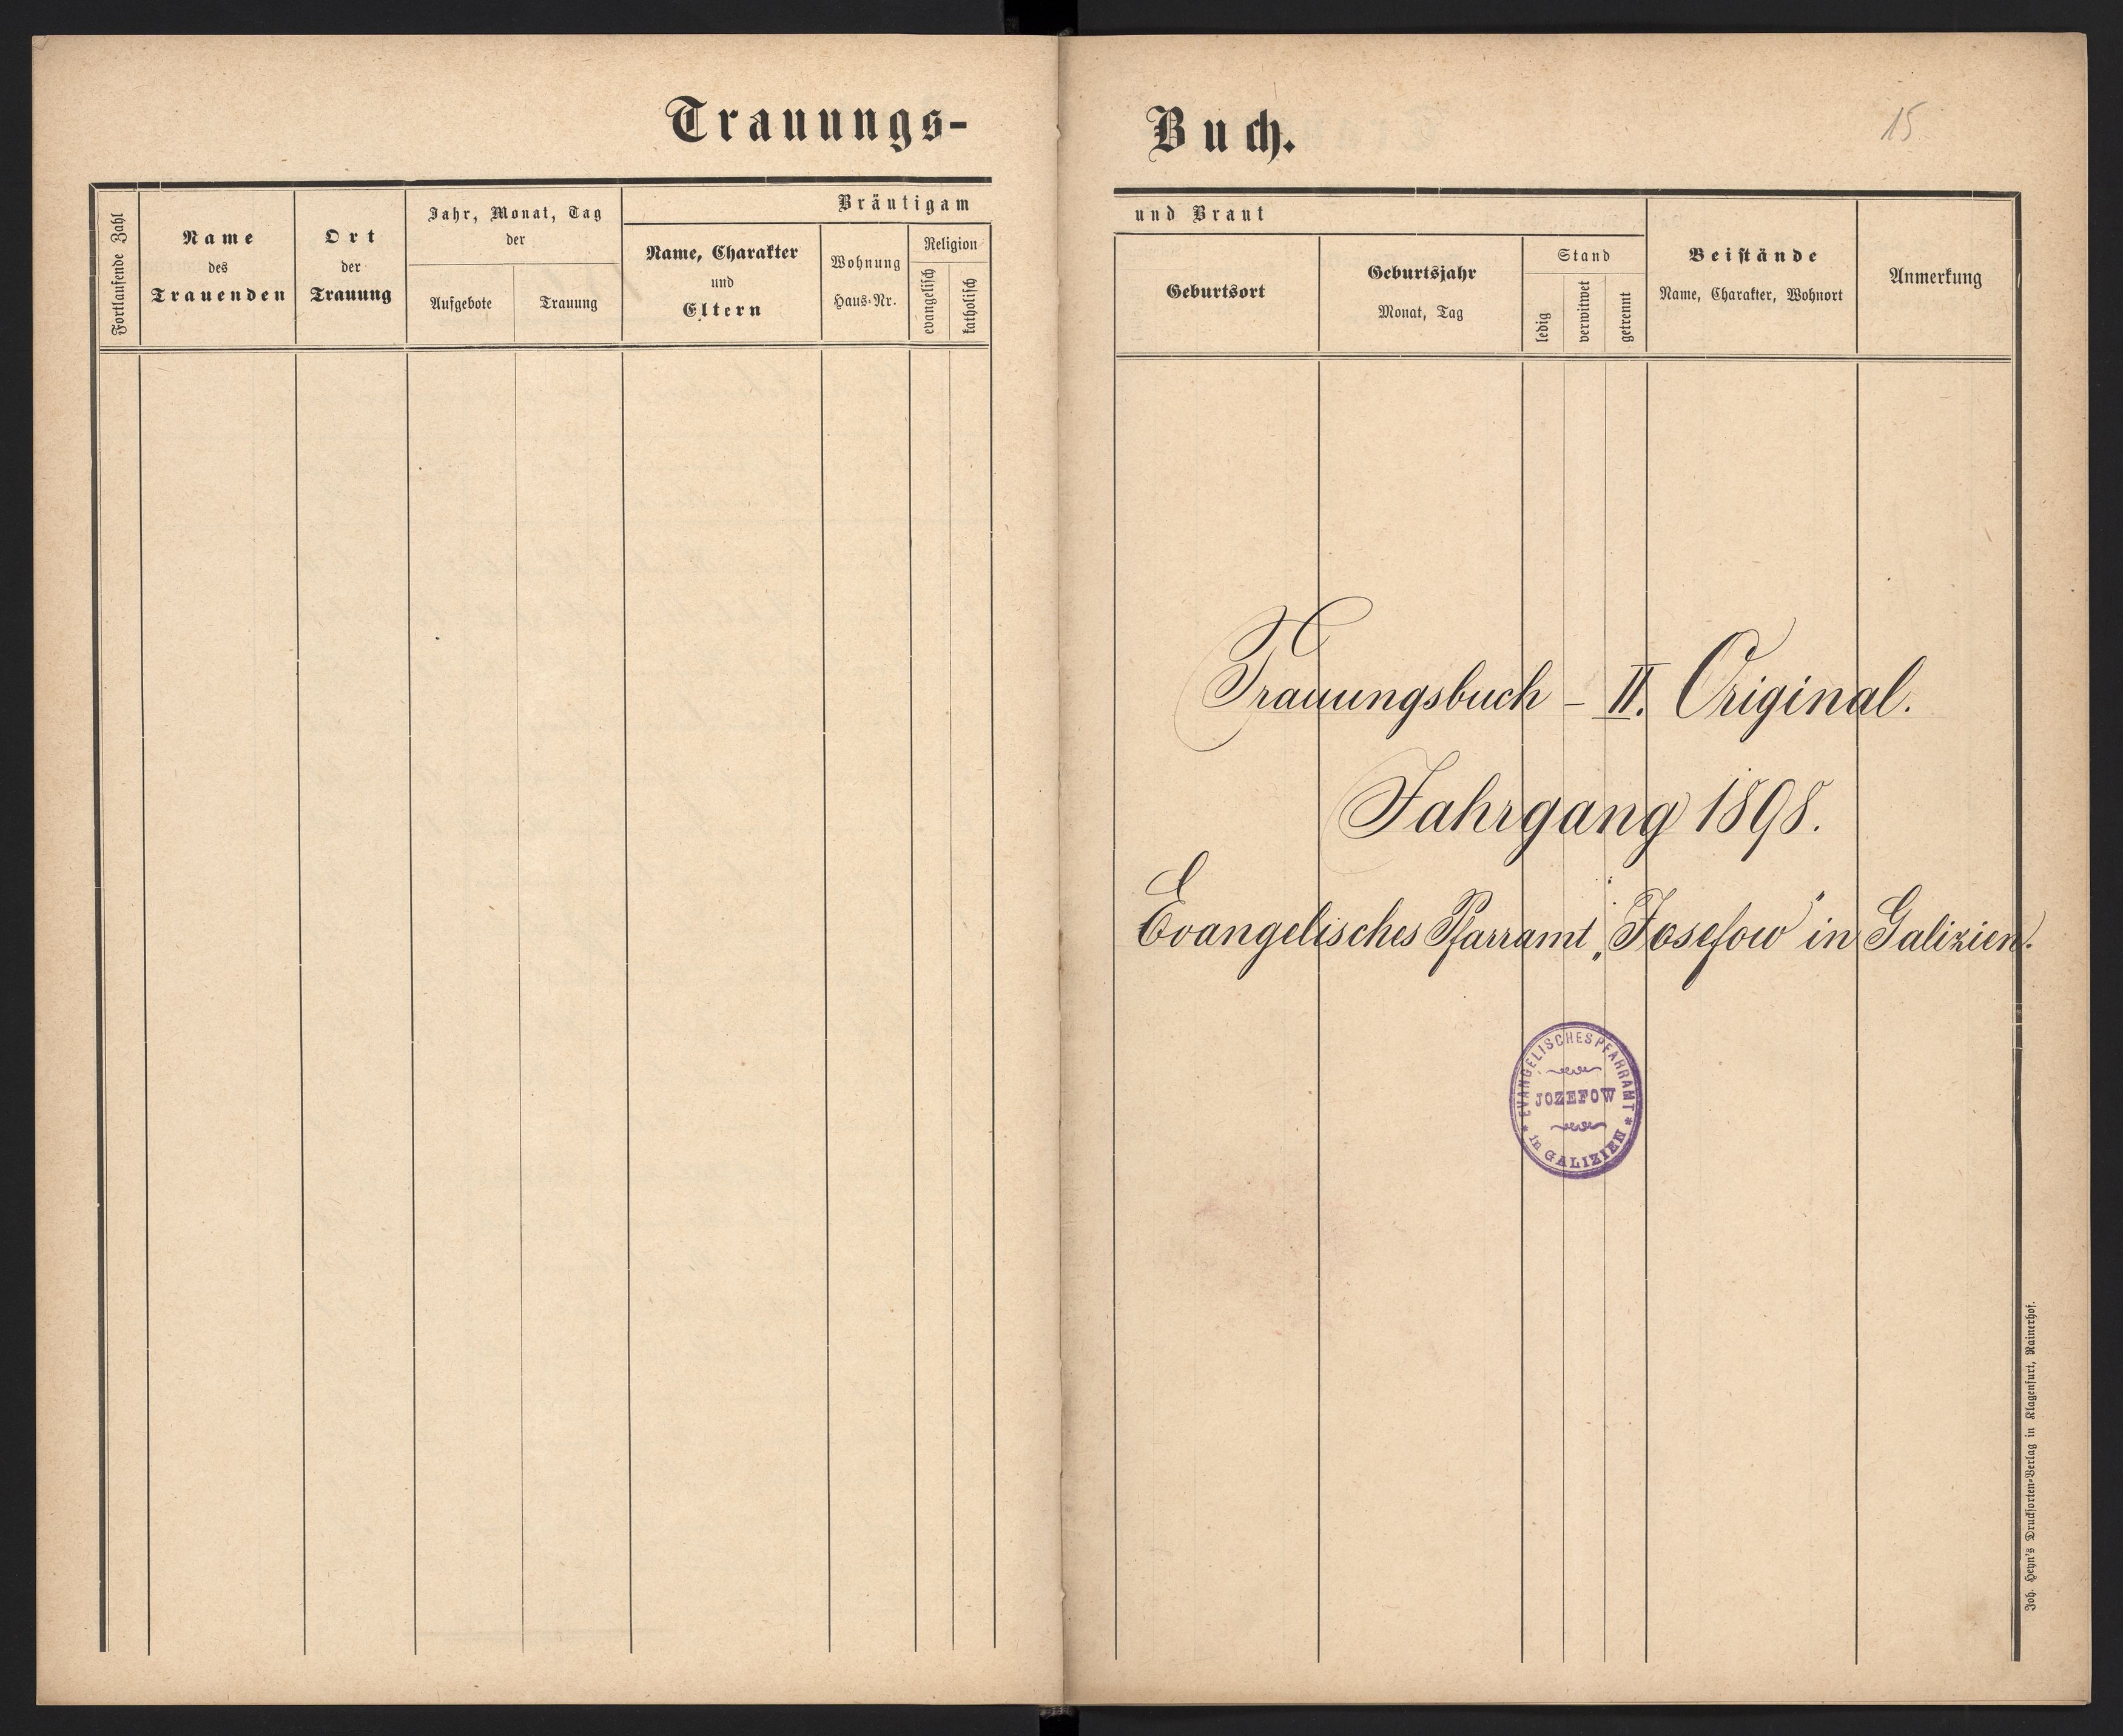 Trauungs-
Fortlaufende Zahl
Name
des
Trauenden
Ort
der
Trauung
Jahr, Monat, Tag
der
Aufgebote
Trauung
Bräutigam
Name, Charakter
und
Eltern
Wohnung
Haus-Nr.
Religion
evangelisch
katholisch
Buch.
15
und Braut
Geburtsort
Geburtsjahr
Monat, Tag
Stand
ledig
verwitwet
getrennt
Beistände
Name, Charakter, Wohnort
Anmerkung
Trauungsbuch – II. Original.
Jahrgang 1898.
Evangelisches Pfarramt „Josefow" in Galizien.
EVANGELISCHES PFARRAMT
JOZEFOW
* in GALIZIEN *
Joh. Heyn's Drucksorten-Verlag in Klagenfurt, Rainerhof.